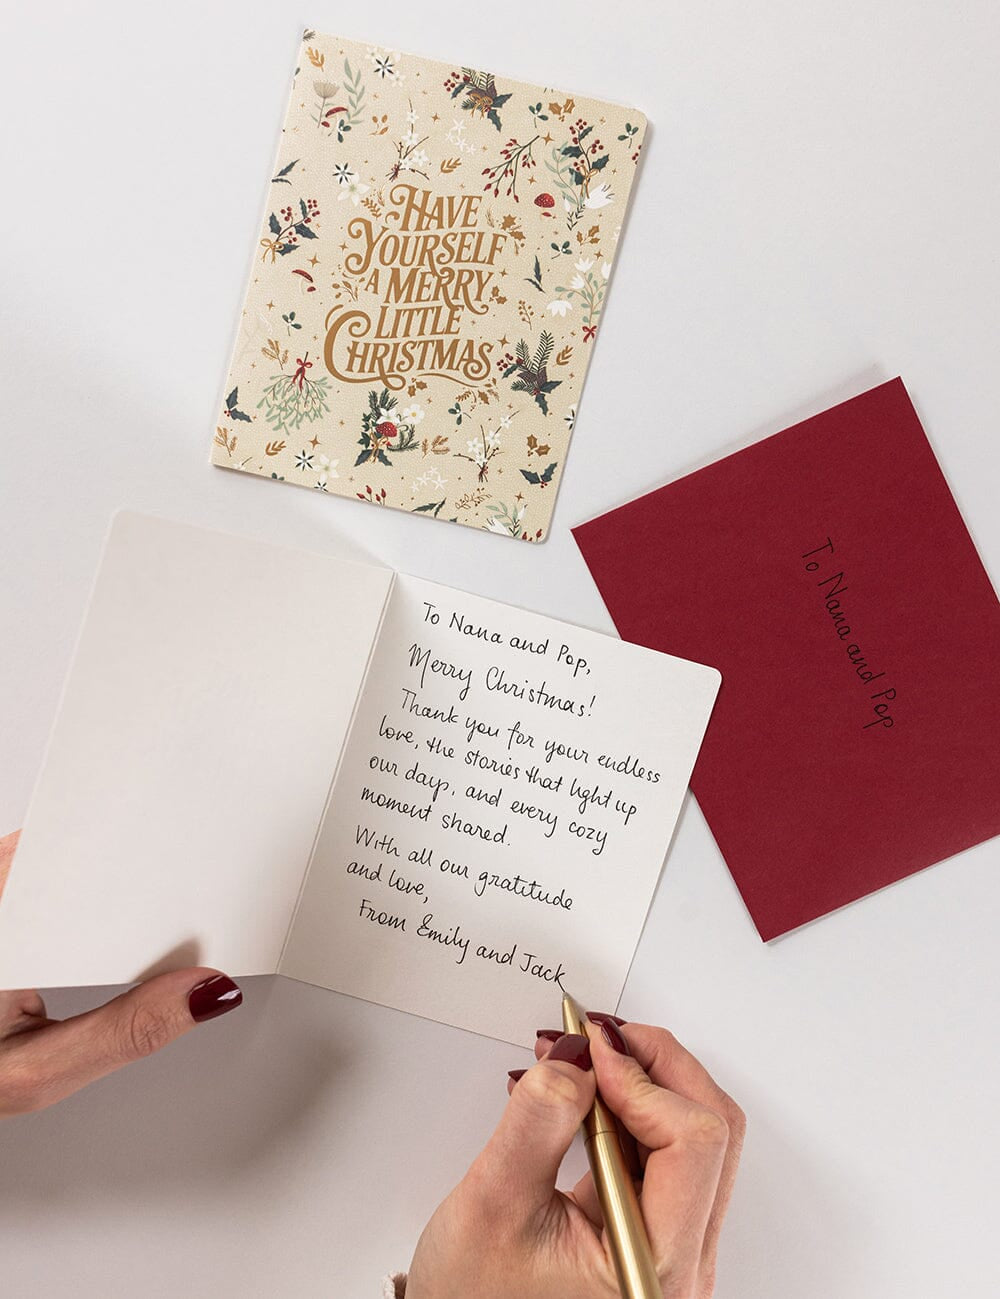 HAVE
YOURSELF
A MERRY
LITTLE
CHRISTMAS
To Nana and Pop
To Nana and Pop,
Merry Christmas!
Thank you for your endless
love, the stories that light up
our days, and every cozy
moment shared.
With all our gratitude
and love,
From Emily and Jack